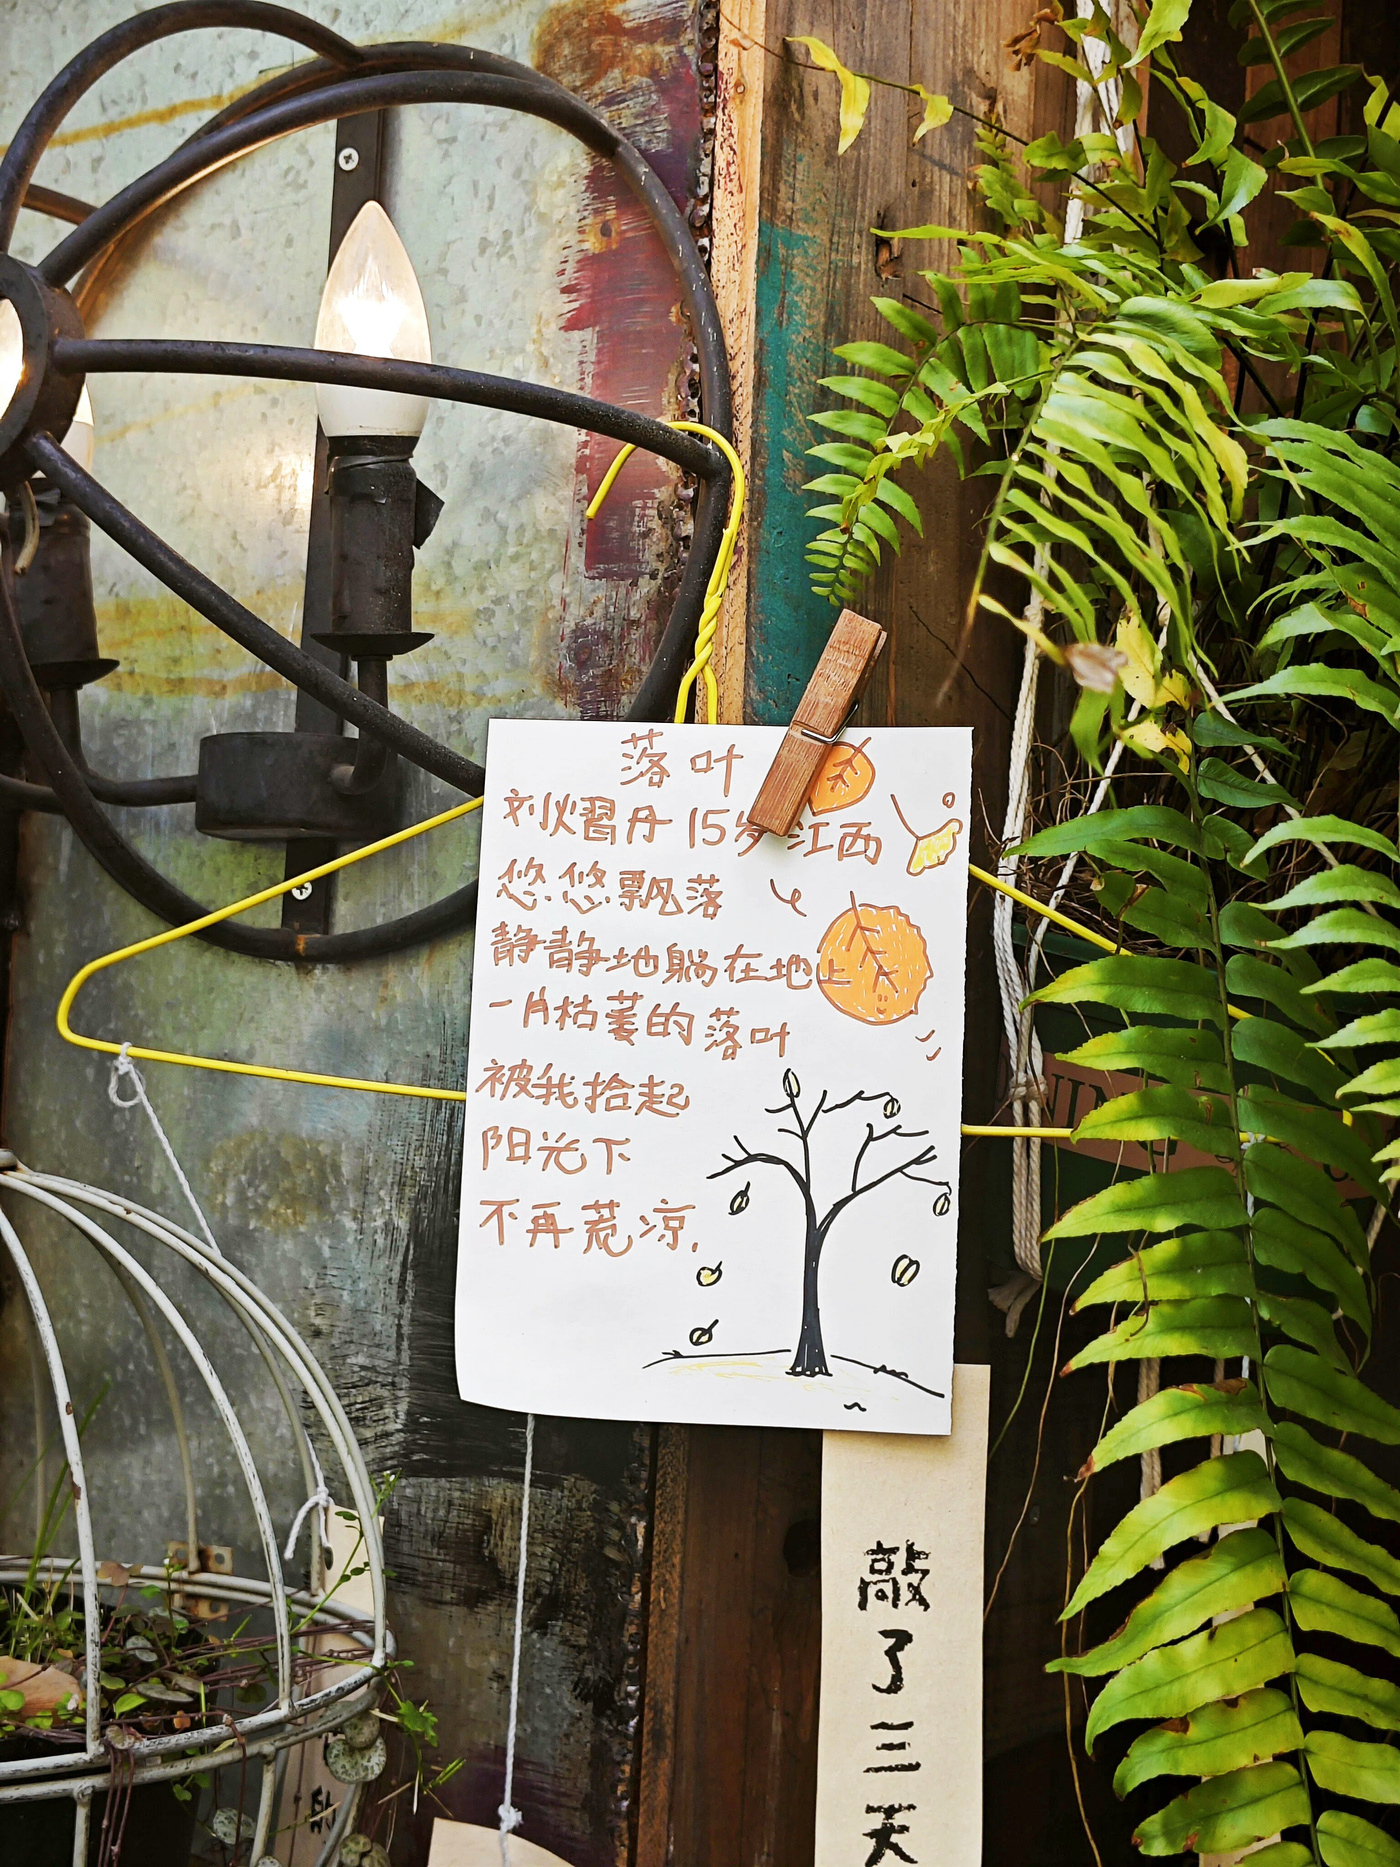 落叶
刘火熠丹 15岁 江西
悠悠飘落
静静地躺在地上
一片枯萎的落叶
被我拾起
阳光下
不再荒凉.
敲
了
三
天